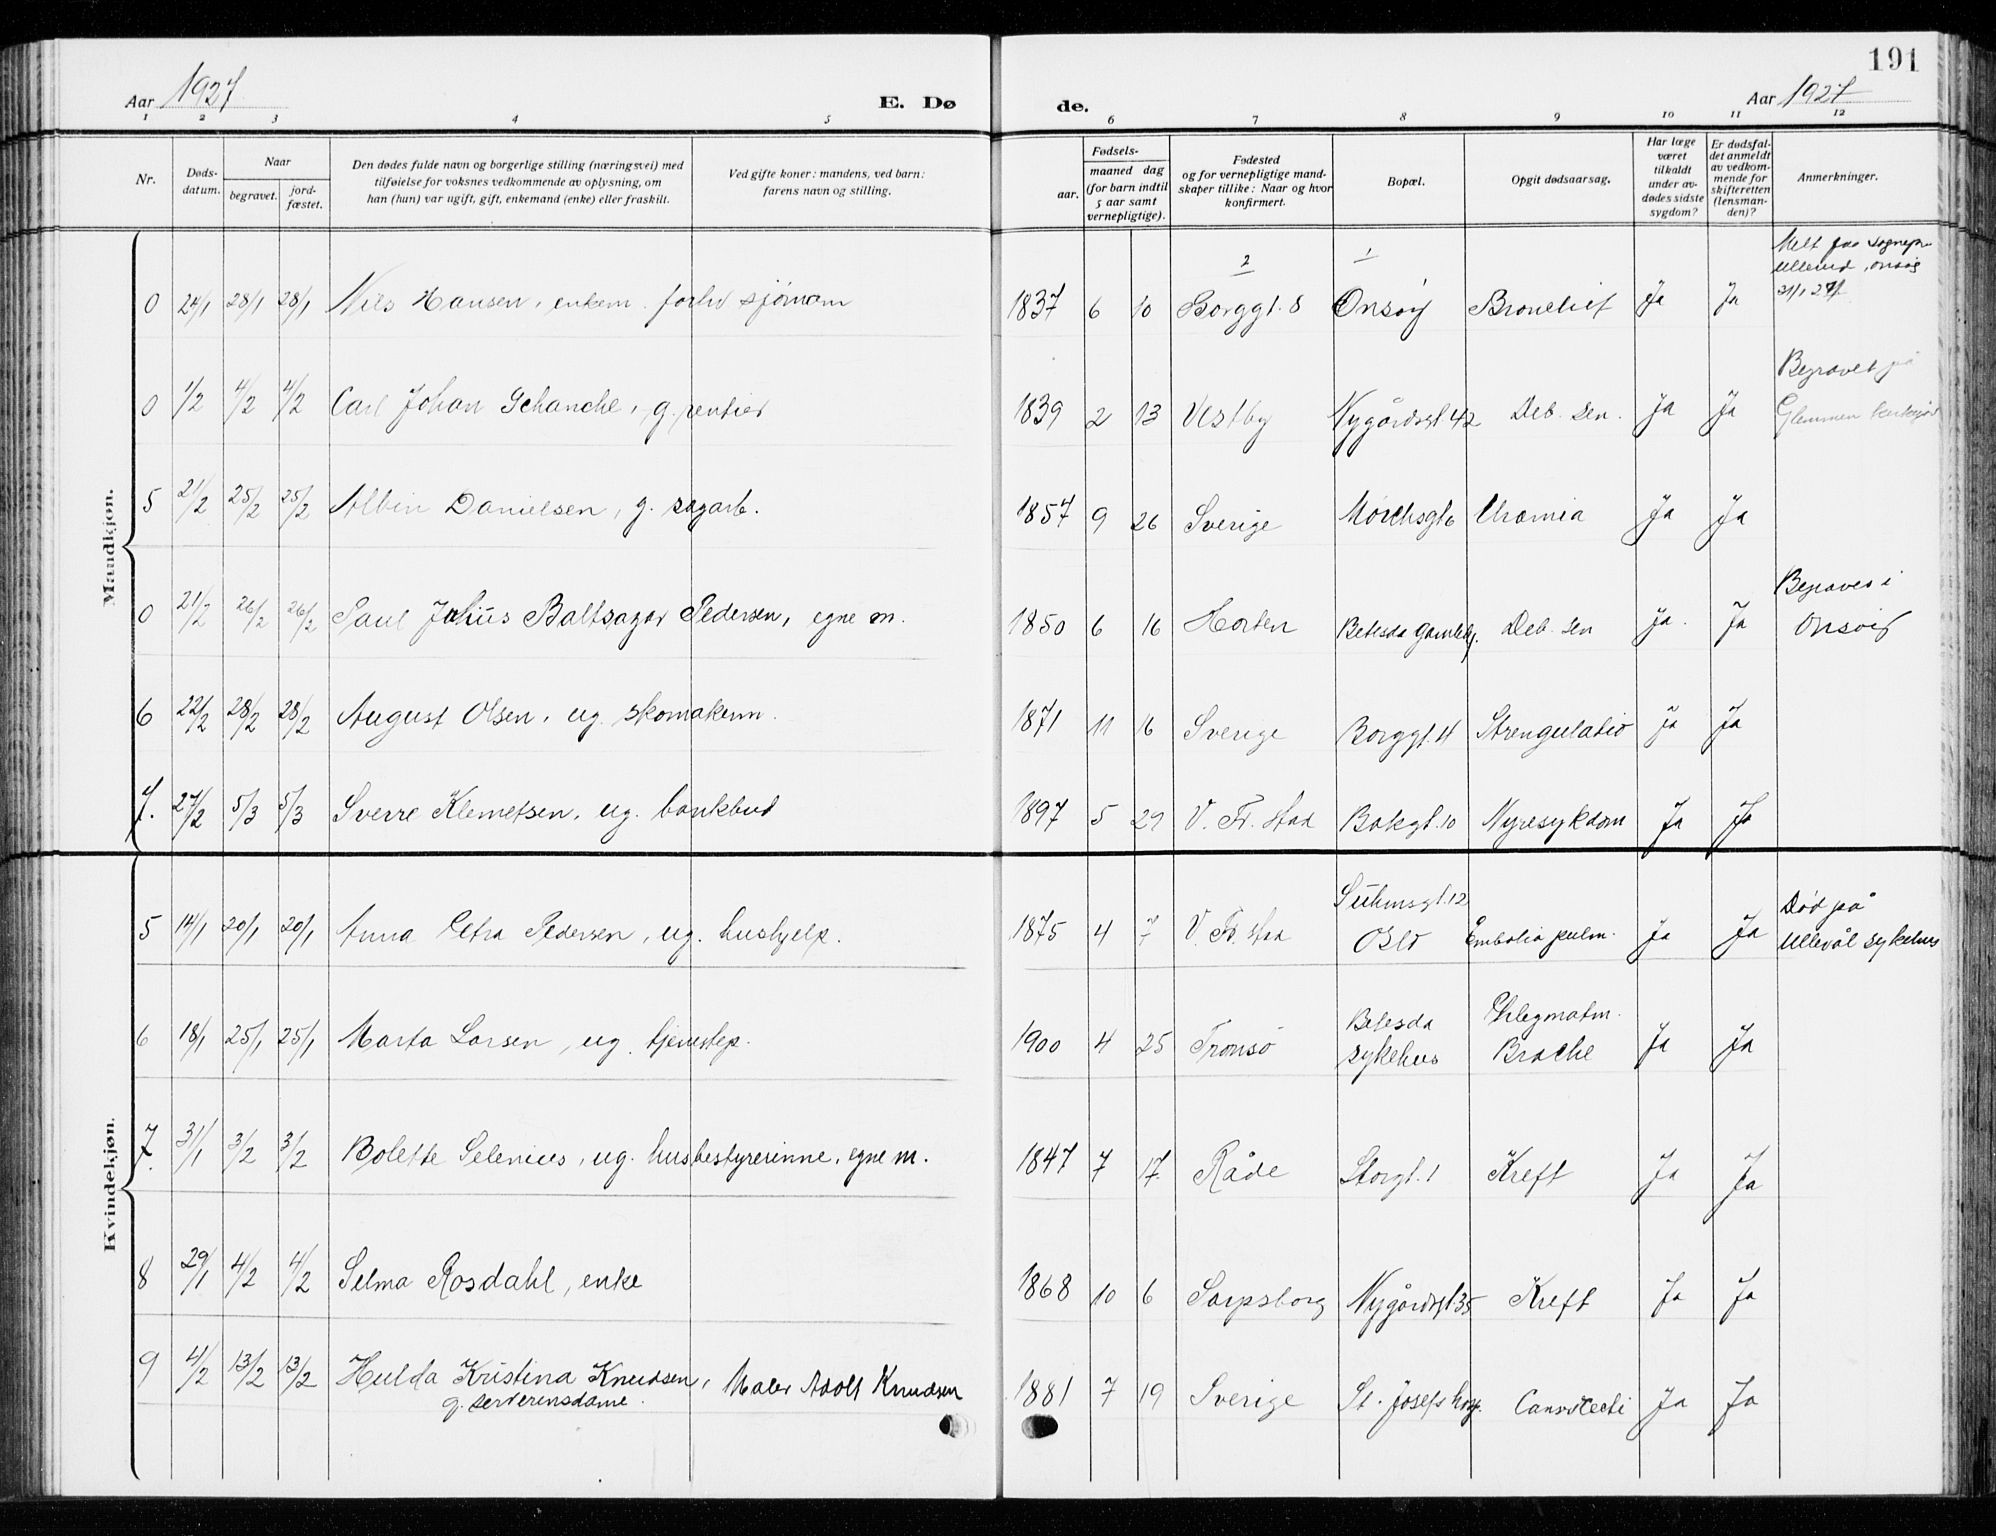 191
Aar 1927 E. Dø de. Aar 1927
1 2 3 4 5 6 7 8 9 10 11 12
Nr. Døds-datum. Naar begravet. jord-fæstet. Den dødes fulde navn og borgerlige stilling (næringsvei) med tilføielse for voksnes vedkommende av oplysning, om han (hun) var ugift, gift, enkemand (enke) eller fraskilt. Ved gifte koner: mandens, ved barn: farens navn og stilling. Fødsels- aar. maaned dag (for barn indtil 5 aar samt vernepligtige). Fødested og for vernepligtige mand-skaper tillike: Naar og hvor konfirmert. Bopæl. Opgit dødsaarsag. Har læge været tilkaldt under av-dødes sidste sygdom? Er dødsfal-det anmeldt av vedkom-mende for skifteretten (lensman-den)? Anmerkninger.
Mandkjøn.
2 1
0 24/1 28/1 28/1 Nils Hansen, enkem. forhv sjömann 1837 6 10 Borggt. 8 Onsøy Ja Ja Melt
0 1/2 4/2 4/2 Carl Johan Schanche, g. rentier 1839 2 13 Vestby Nygårdsgt. 42 Deb. sen. Ja Ja Begravet på Glemmen
5 21/2 25/2 25/2 Albin Danielsen, g. sagarb. 1857 9 26 Sverige Mørchsgt 6 Uræmia Ja Ja
0 21/2 26/2 26/2 Paul Julius Baltsazar Pedersen, egne m. 1850 6 16 Horten Betesda gamleh. Deb. sen Ja. Ja Begraves i Onsøy
6 22/2 28/2 28/2 August Olsen, ug. skomakerm. 1871 11 16 Sverige Borggt. 4 Strengulatio Ja Ja
7. 27/2 5/3 5/3 Sverre Klemetsen, ug. bankbud 1897 5 29 V. Fr. stad Bakgt. 10 Nyresykdom Ja Ja
Kvindekjøn.
5 14/1 20/1 20/1 Anna Petra Pedersen, ug. hushjelp. 1875 4 V. Fr. stad Suhmsgt. 12 Oslo Embolia pulm. Ja Ja Død på Ullevål sykehus
6 18/1 25/1 25/1 Marta Larsen, ug. tjenestep. 1900 4 25 Tromsö Betesda sykehus Phlegmatm. Brachi Ja Ja
7. 31/1 3/2 3/2 Bolette Selenius, ug. husbestyrerinne, egne m. 1847 7 17. Råde Storgt. 1 Kreft Ja Ja
8 29/1 4/2 4/2 Selma Rosdahl, enke 1868 10 6 Sarpsborg Nygårdsgt 35 Kreft Ja Ja
9 4/2 13/2 13/2 Hulda Kristina Knudsen, g. serveringsdame. Maler Adolf Knudsen 1881 7 19 Sverige St. Josefs hosp. Ja Ja